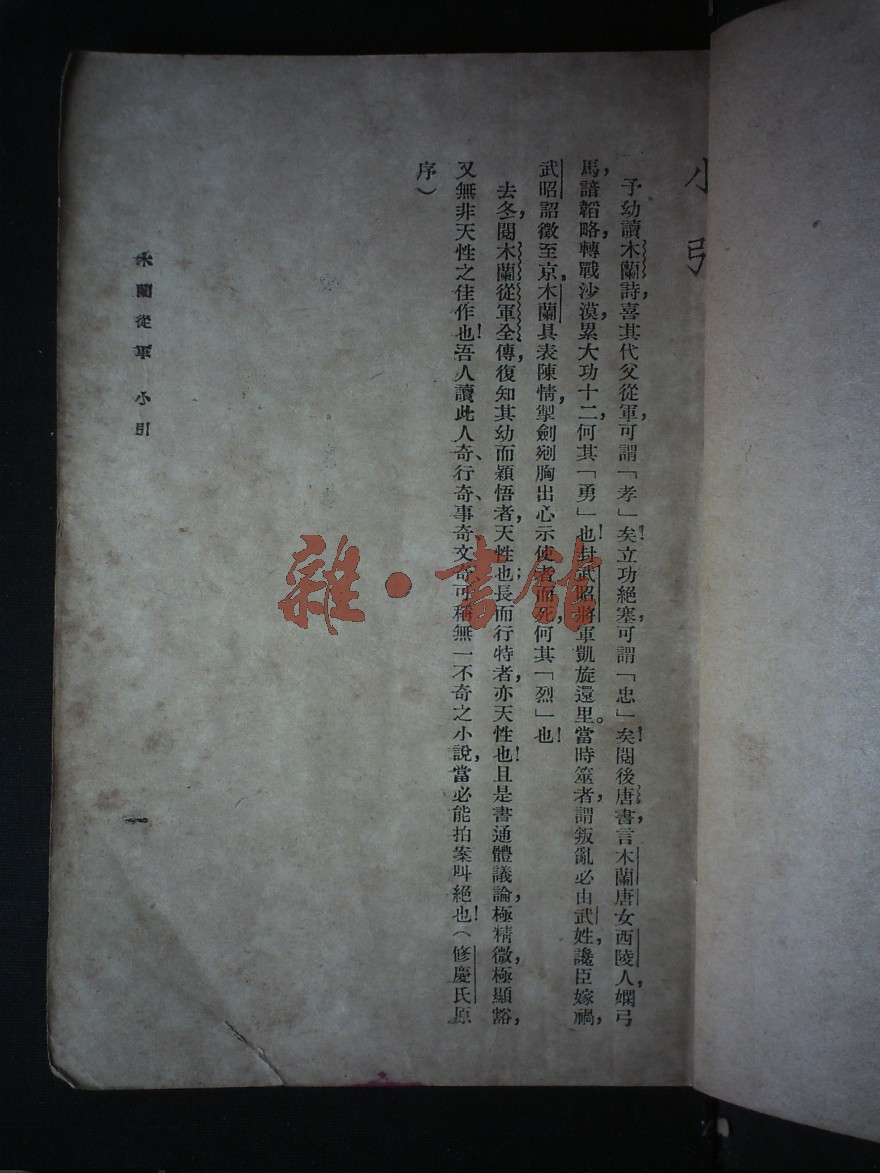 小引
予幼讀木蘭詩，喜其代父從軍，可謂「孝」矣！立功絕塞，可謂「忠」矣！閱後唐書，言木蘭唐女，西陵人，嫻弓
馬，諳韜略，轉戰沙漠，累大功十二，何其「勇」也！封武昭將軍凱旋還里。當時筮者，謂叛亂必由武姓，讒臣嫁禍，
武昭詔徵至京，木蘭具表陳情，掣劍剜胸出心示使者而死，何其「烈」也！
去冬，閱木蘭從軍全傳，復知其幼而穎悟者，天性也；長而行特者，亦天性也！且是書通體議論，極精微，極顯豁，
又無非天性之佳作也！吾人讀此人奇、行奇、事奇文奇可稱無一不奇之小說，當必能拍案叫絕也！（修慶氏原
序）
木蘭從軍 小引
一
雜·書館